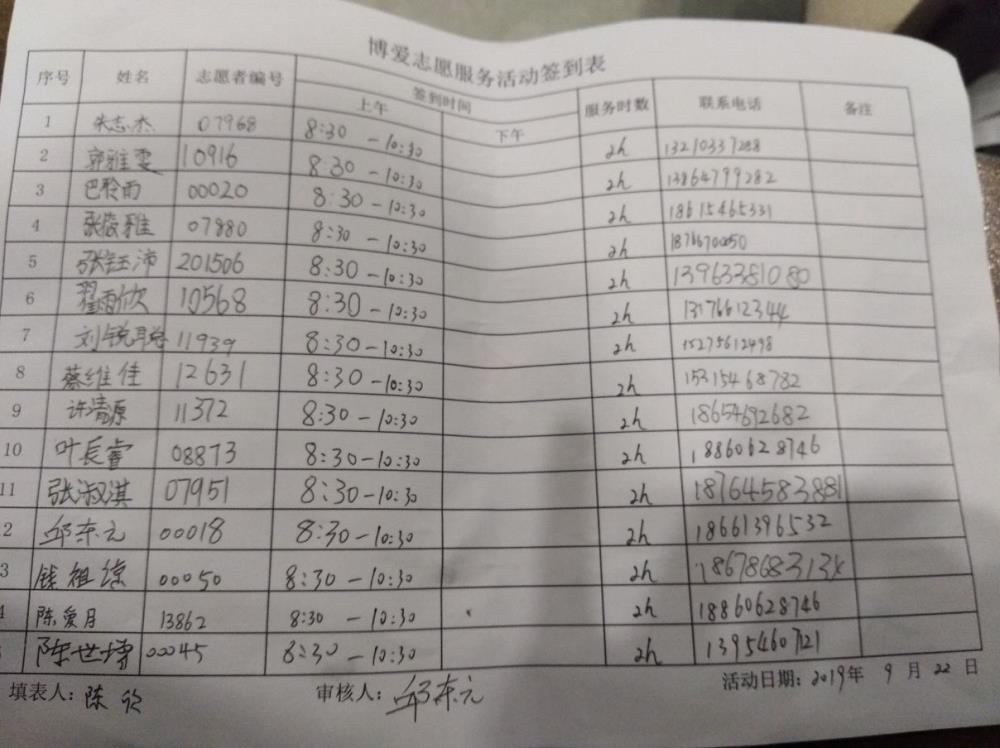 博爱志愿服务活动签到表
序号 姓名 志愿者编号 签到时间 服务时数 联系电话 备注
上午 下午
1 朱志杰 07968 8:30-10:30 2h 13210337288
2 郭雅雯 10916 8:30-10:30 2h 13864799282
3 巴聆雨 00020 8:30-10:30 2h 18615465331
4 张俊雅 07880 8:30-10:30 2h
5 张钰沛 201506 8:30-10:30 2h 13963381080
6 翟雨欣 10568 8:30-10:30 2h 13176612344
7 刘锐聪 11939 8:30-10:30 2h 15275612498
8 蔡维佳 12631 8:30-10:30 2h 15315468782
9 许清源 11372 8:30-10:30 2h 18654692682
10 叶长睿 08873 8:30-10:30 2h 18860628746
11 张淑淇 07951 8:30-10:30 2h 18764583881
2 邱东元 00018 8:30-10:30 2h 18661396532
3 钱祖 00050 8:30-10:30 2h
4 陈爱月 13862 8:30-10:30 2h 18860628746
陈世博 00045 8:30-10:30 2h 13954607121
填表人:陈欣 审核人:邱东元 活动日期:2019年 9 月 22 日